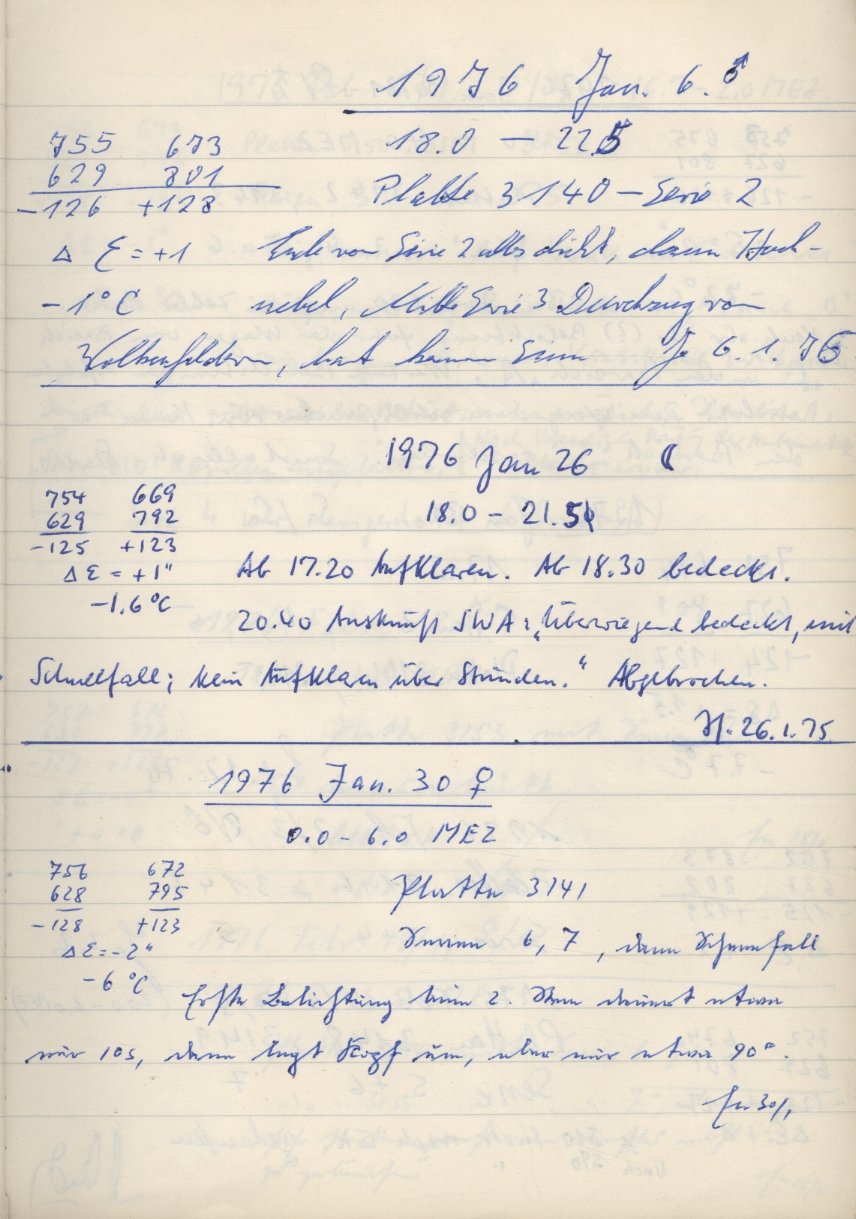 1976 Jan. 6. ♂
755 673 18.0 — 22.5
629 801 Platte 3140 — Serie 2
-126 +128
Δ Σ = +1 Ende von Serie 2 alles dicht, dann Hoch-
-1°C nebel, Mitte Serie 3 Durchzug von
Wolkenfeldern, hat keinen Sinn 6.1.76
1976 Jan 26 ☾
754 669
629 792 18.0 – 21.5
-125 +123
Δ Σ = +1" Ab 17.20 Aufklaren. Ab 18.30 bedeckt.
-1,6°C
20.40 Auskunft SWA: „Überwiegend bedeckt, mit
Schneefall; kein Aufklaren über Stunden.“ Abgebrochen.
26.1.75
1976 Jan. 30 ♀
0.0 – 6.0 MEZ
756 672
628 795 Platte 3141
-128 +123
Δ Σ = -2" 6, 7, dann Schneefall
-6 °C
Erste Belichtung beim 2. Stern dauert etwa
nur 10s, dann legt Kopf um, aber nur etwa 90°.
30/1